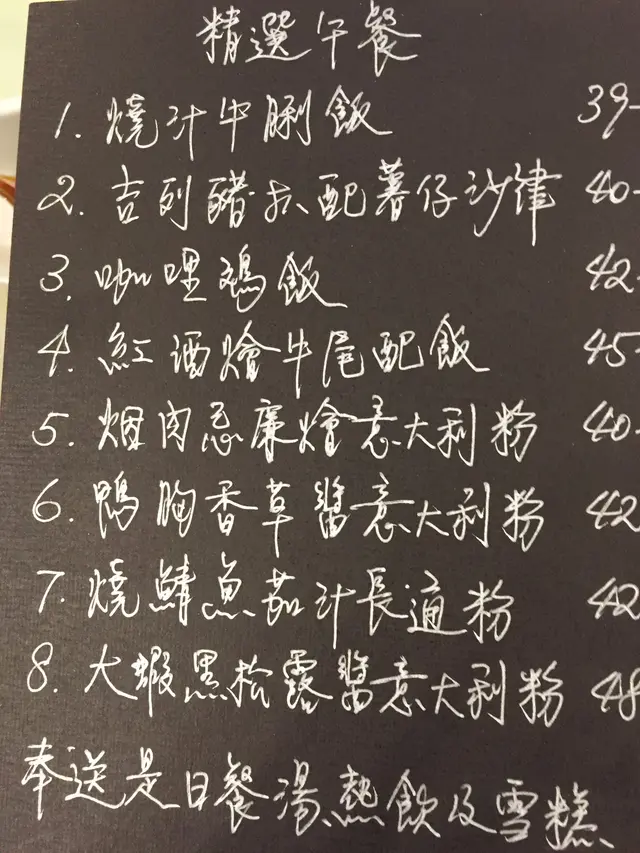 精選午餐
1. 燒汁牛脷飯 39-
2. 吉列豬扒配薯仔沙律 40-
3. 咖哩鷄飯 42-
4. 紅酒燴牛尾配飯 45-
5. 烟肉忌廉燴意大利粉 40-
6. 鴨胸香草醬意大利粉 42
7. 燒鯖魚茄汁長通粉 42
8. 大蝦黑松露醬意大利粉 48
奉送是日餐湯、熱飲及雪糕